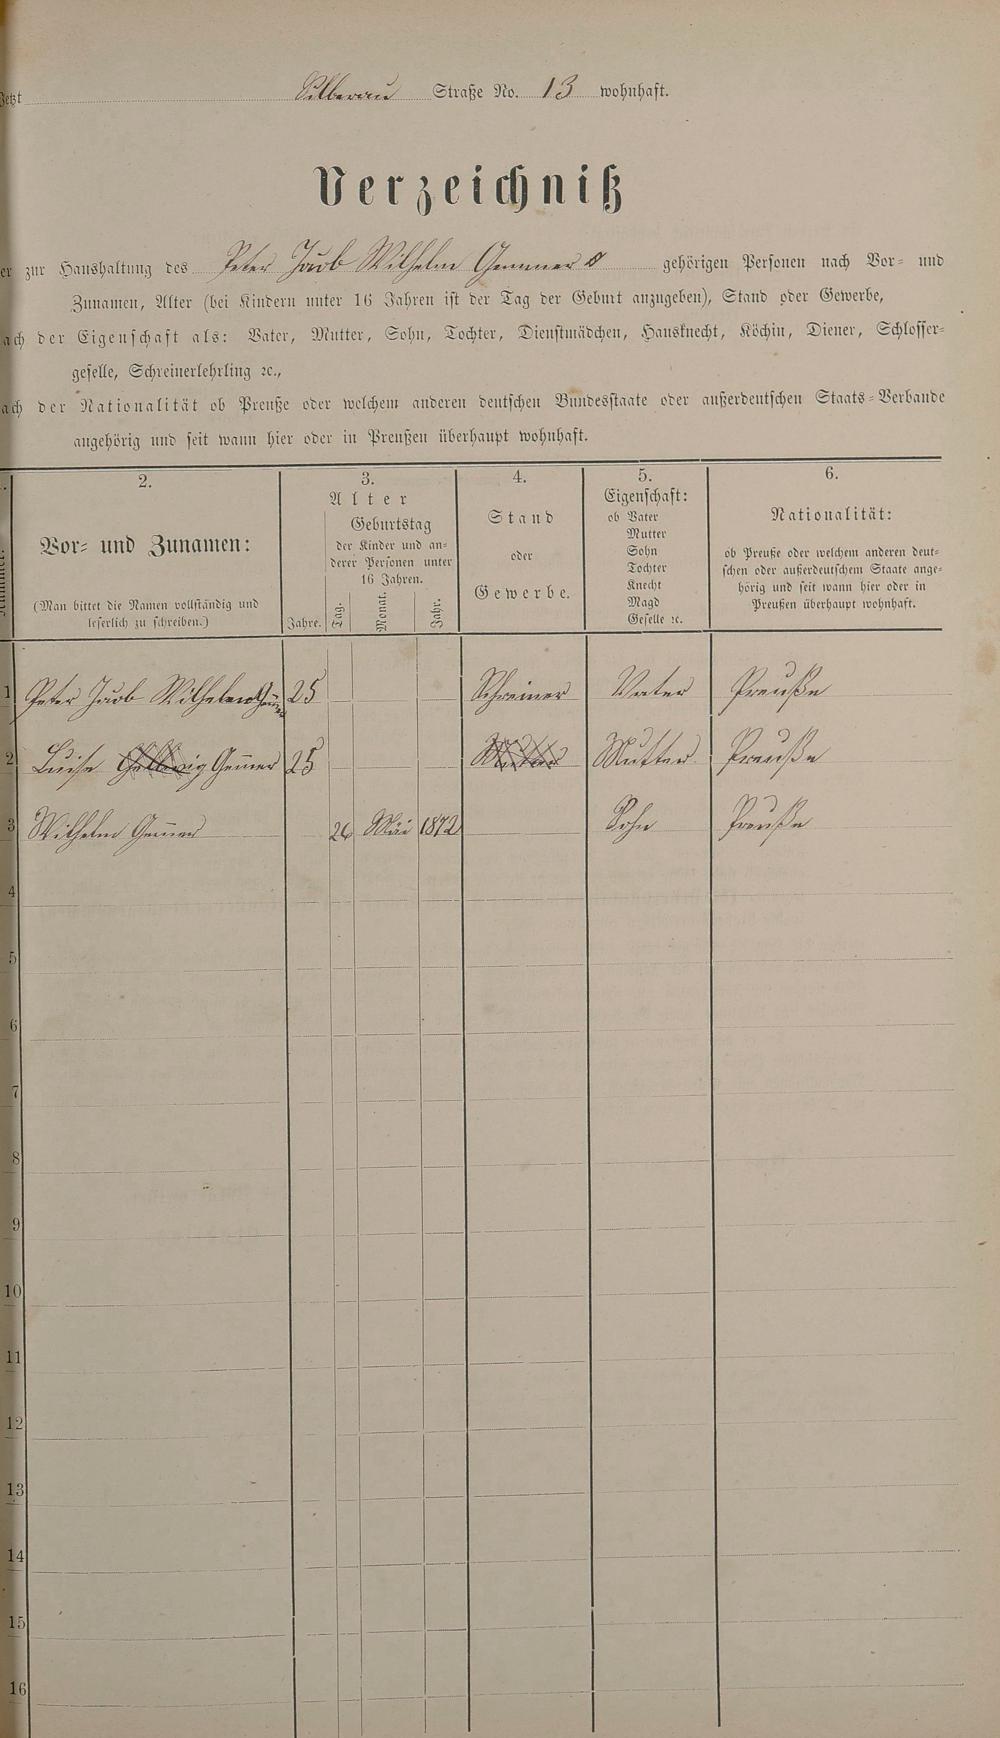 Jetzt Silberau Straße No. 13 wohnhaft.
Verzeichniß
er zur Haushaltung des Peter Jacob Wilhelm Gemmer gehörigen Personen nach Vor- und
Zunamen, Alter (bei Kindern unter 16 Jahren ist der Tag der Geburt anzugeben), Stand oder Gewerbe,
ach der Eigenschaft als: Vater, Mutter, Sohn, Tochter, Dienstmädchen, Hausknecht, Köchin, Diener, Schlosser-
geselle, Schreinerlehrling ꝛc.,
ach der Nationalität ob Preuße oder welchem anderen deutschen Bundesstaate oder außerdeutschen Staats-Verbande
angehörig und seit wann hier oder in Preußen überhaupt wohnhaft.
2.
Vor- und Zunamen:
(Man bittet die Namen vollständig und
leserlich zu schreiben.)
3.
Alter
Jahre.
Geburtstag
der Kinder und an-
derer Personen unter
16 Jahren.
Tag.
Monat.
Jahr.
4.
Stand
oder
Gewerbe.
5.
Eigenschaft:
ob Vater
Mutter
Sohn
Tochter
Knecht
Magd
Geselle ꝛc.
6.
Nationalität:
ob Preuße oder welchem anderen deut-
schen oder außerdeutschem Staate ange-
hörig und seit wann hier oder in
Preußen überhaupt wohnhaft.
1 Peter Jacob Wilhelm 25 Schreiner Vater Preuße
2 Luise Gem̄er 25 Mutter Preuße
3 Wilhelm Gem̄er 26 Mai 1872 Sohn Preuße
4
5
6
7
8
9
10
11
12
13
14
15
16